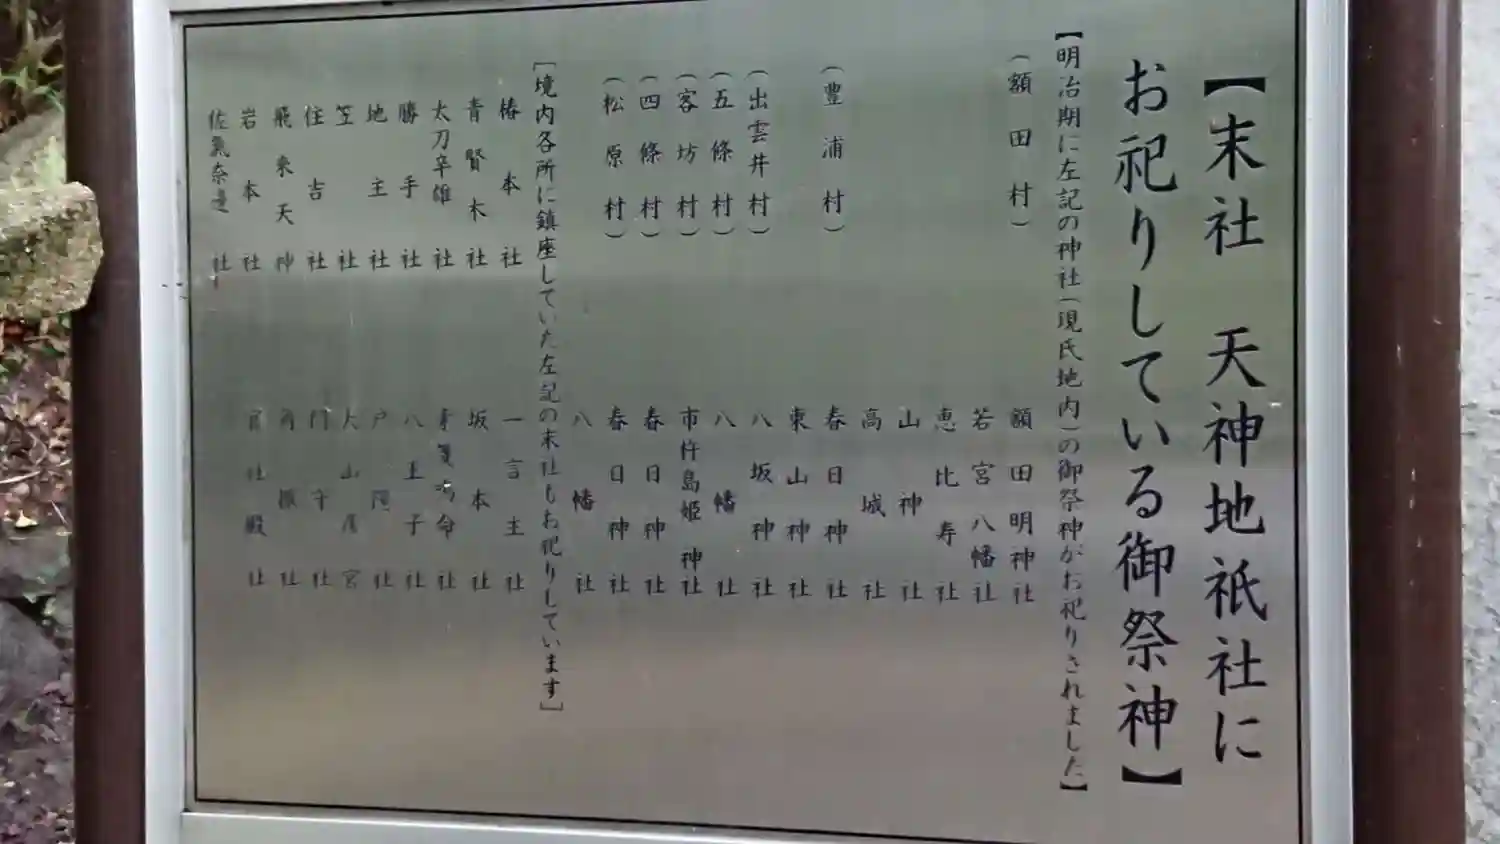 【末社 天神地祇社に
お祀りしている御祭神】
【明治期に左記の神社(現氏地内)の御祭神がお祀りされました】
(額田村) 額田明神社
若宮八幡社
恵比寿社
山神社
高城社
(豊浦村) 春日神社
東山神社
(出雲井村) 八坂神社
(五條村) 八幡社
(客坊村) 市杵島姫神社
(四條村) 春日神社
(松原村) 春日神社
八幡社
[境内各所に鎮座していた左記の末社もお祀りしています]
椿本社 一言主社
青賢木社 坂本社
太刀辛雄社 社
勝手社 八王子社
地主社 戸隠社
笠社 大山彦宮
住吉社 門守社
飛来天神 角振社
岩本社 官社殿社
佐氣奈邊社